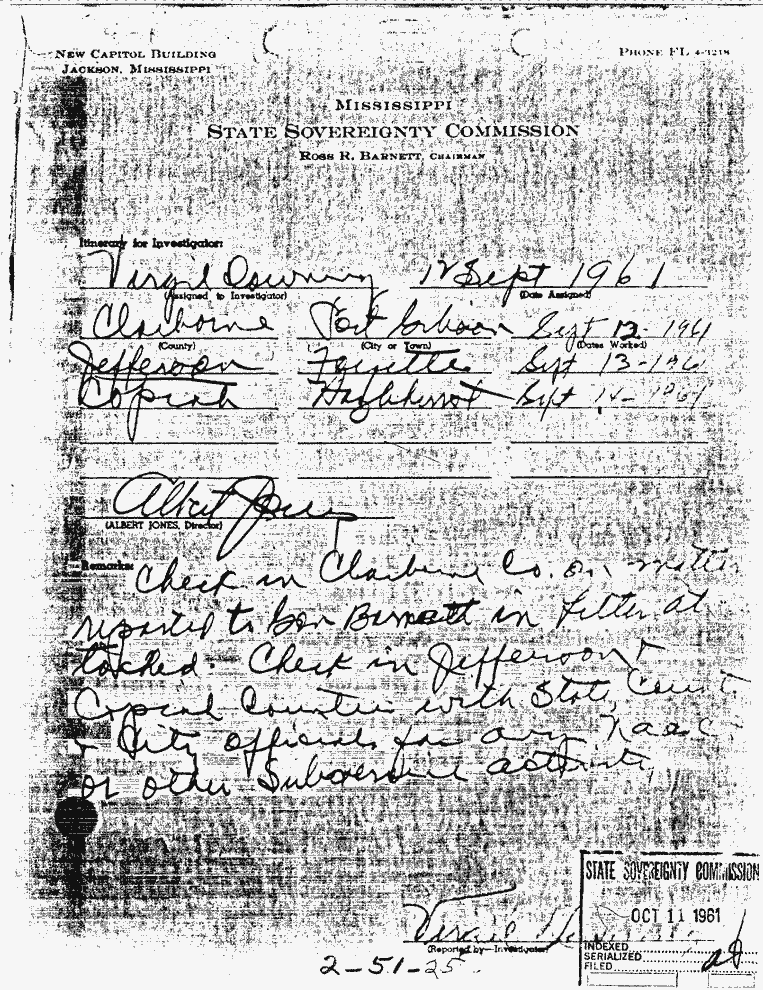 NEW CAPITOL BUILDING
JACKSON, MISSISSIPPI
PHONE FL 4-3218
MISSISSIPPI
STATE SOVEREIGNTY COMMISSION
ROSS R. BARNETT, CHAIRMAN
Itinerary for Investigator:
Virgil Downing 12 Sept 1961
(Assigned to Investigator) (Date Assigned)
Claiborne Port Gibson Sept 12-1961
(County) (City or Town) (Dates Worked)
Jefferson Fayette Sept 13-1961
Copiah Hazlehurst Sept 14-1961
Albert Jones
(ALBERT JONES, Director)
Remarks:
Check in Claiborne Co. on matter
reported to Gov Barnett in letter at
tached. Check in Jefferson &
Copiah Counties with State, County
& City officials for any Naacp
or other Subversive activity
Virgil Downing
(Reported by—Investigator)
2-51-25
STATE SOVEREIGNTY COMMISSION
OCT 11 1961
INDEXED
SERIALIZED
FILED